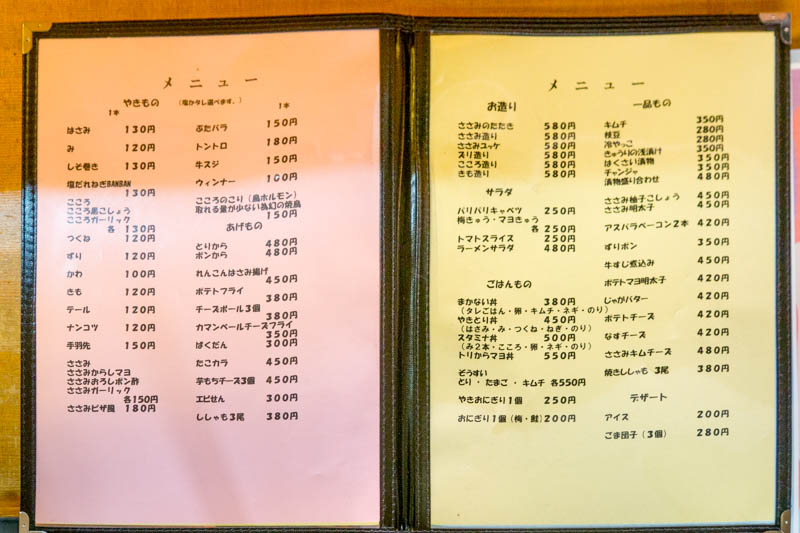 メニュー
やきもの (塩かタレ選べます。)
1本
はさみ 130円
み 120円
しそ巻き 130円
塩だれねぎBANBAN
130円
こころ
こころ黒こしょう
こころガーリック
各 130円
つくね 120円
ずり 120円
かわ 100円
きも 120円
テール 120円
ナンコツ 120円
手羽先 150円
ささみ
ささみからしマヨ
ささみおろしポン酢
ささみガーリック
各150円
ささみピザ風 180円
1本
ぶたバラ 150円
トントロ 180円
牛スジ 150円
ウィンナー 100円
こころのこり(鳥ホルモン)
取れる量が少ない為幻の焼鳥
150円
あげもの
とりから 480円
ポンから 480円
れんこんはさみ揚げ
450円
ポテトフライ
380円
チーズボール3個
380円
カマンベールチーズフライ
350円
ばくだん 300円
たこカラ 450円
芋もちチーズ3個 450円
エビせん 300円
ししゃも3尾 380円
メニュー
お造り
ささみのたたき 580円
ささみ造り 580円
ささみユッケ 580円
ズリ造り 580円
こころ造り 580円
きも造り 580円
サラダ
パリパリキャベツ 250円
梅きゅう・マヨきゅう
各 250円
トマトスライス 250円
ラーメンサラダ 480円
ごはんもの
まかない丼 380円
(タレごはん・卵・キムチ・ネギ・のり)
やきとり丼 450円
(はさみ・み・つくね・ねぎ・のり)
スタミナ丼 500円
(み2本・こころ・卵・ネギ・のり)
トリからマヨ丼 550円
ぞうすい
とり・たまご・キムチ 各550円
やきおにぎり1個 250円
おにぎり1個(梅・鮭)200円
一品もの
キムチ 350円
枝豆 280円
冷やっこ 280円
きゅうりの浅漬け 350円
はくさい漬物 350円
チャンジャ 350円
漬物盛り合わせ 480円
ささみ柚子こしょう 450円
ささみ明太子 450円
アスパラベーコン2本 420円
ずりポン 350円
牛すじ煮込み 450円
ポテトマヨ明太子 420円
じゃがバター 420円
ポテトチーズ 420円
なすチーズ 420円
ささみキムチーズ 480円
焼きししゃも 3尾 380円
デザート
アイス 200円
ごま団子(3個) 280円